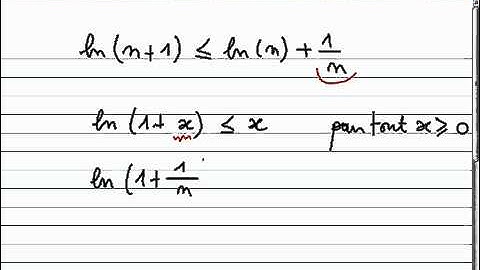 ln(n+1) ≤ ln(n) + 1/n
ln(1+x) ≤ x pour tout x ≥ 0
ln(1+1/n